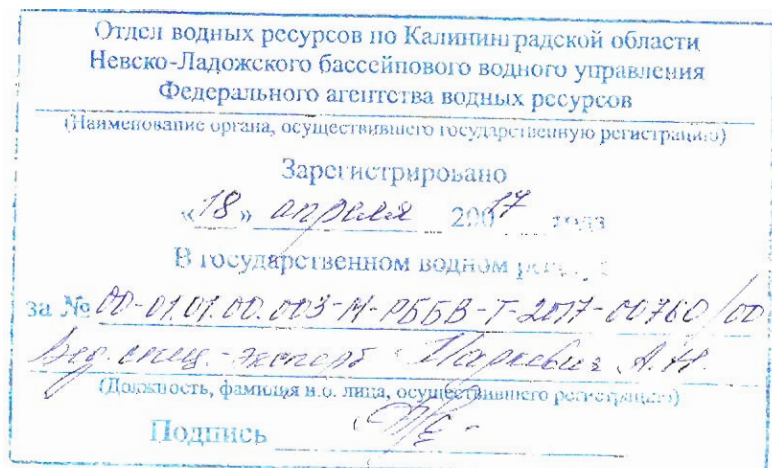 Отдел водных ресурсов по Калининградской области
Невско-Ладожского бассейнового водного управления
Федерального агентства водных ресурсов
(Наименование органа, осуществившего государственную регистрацию)
Зарегистрировано
«18» апреля 2017 года
В государственном водном
за № 00-01.01.00.003-М-РББВ-Т-2017-00760/00
Вед. спец.-эксперт Маркевич А.Н.
(Должность, фамилия и.о. лица, осуществившего регистрацию)
Подпись